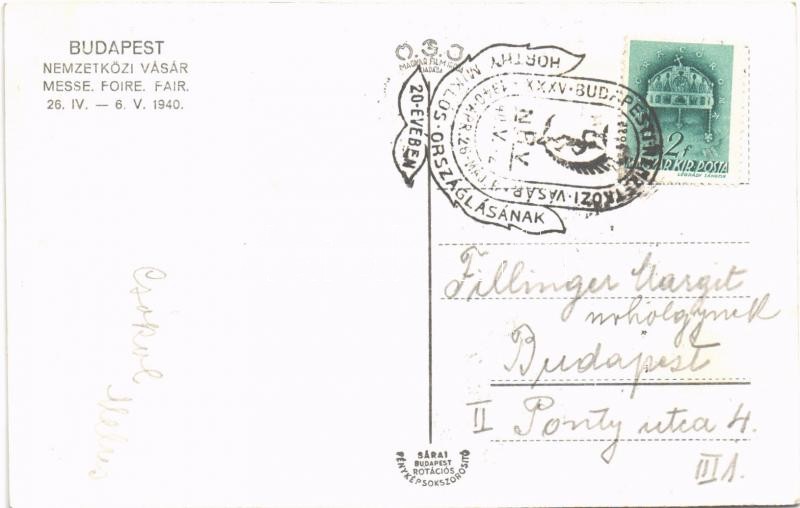 BUDAPEST
NEMZETKÖZI VÁSÁR
MESSE. FOIRE. FAIR.
26. IV. — 6. V. 1940.
Csókol
HORTHY MIKLÓS · ORSZÁGLÁSÁNAK
20-ÉVÉBEN
XXXV · BUDAPESTI NEMZETKÖZI · VÁSÁR
2f
MAGYAR KIR. POSTA
LÉGRÁDY SÁNDOR
Fillinger Margit
úrhölgynek
Budapest
II Ponty utca 4.
III 1.
SÁRAI
BUDAPEST
ROTÁCIÓS
FÉNYKÉPSOKSZOROSITÓ